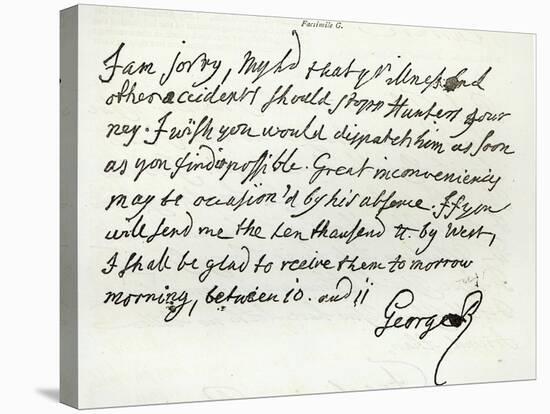 Facsimile G.
I am sorry, My Ld that yr illness and
other accidents should stopp Hunters Jour
ney. I wish you would dispatch him as soon
as you find it possible. Great inconveniency
may be occasion'd by his absence. If you
will send me the ten thousend tt. by West,
I shall be glad to receive them to morrow
morning, between 10. and 11
George R